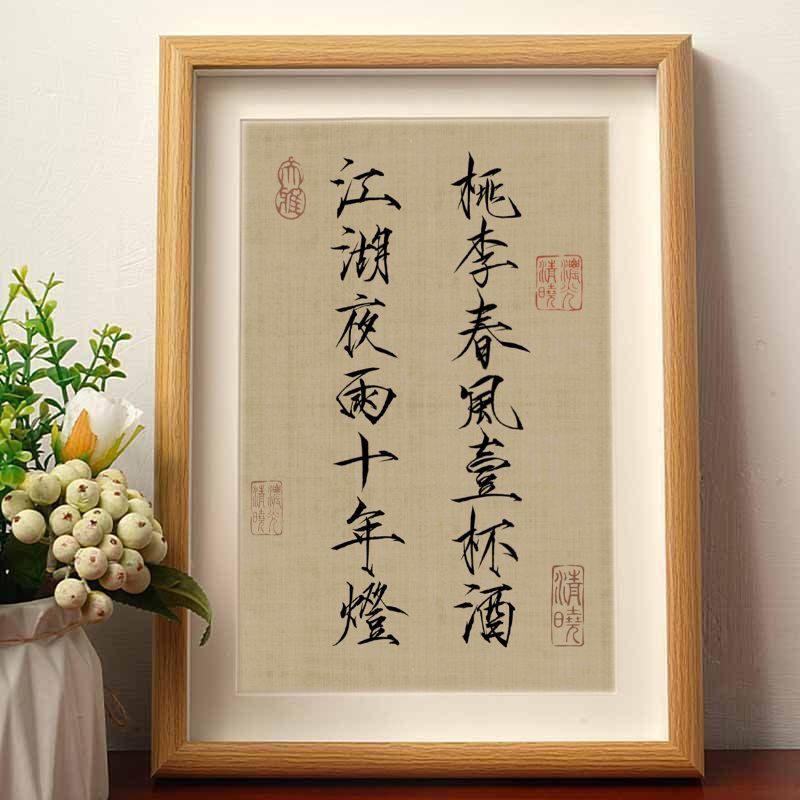 桃李春風壹杯酒
江湖夜雨十年燈
清曉